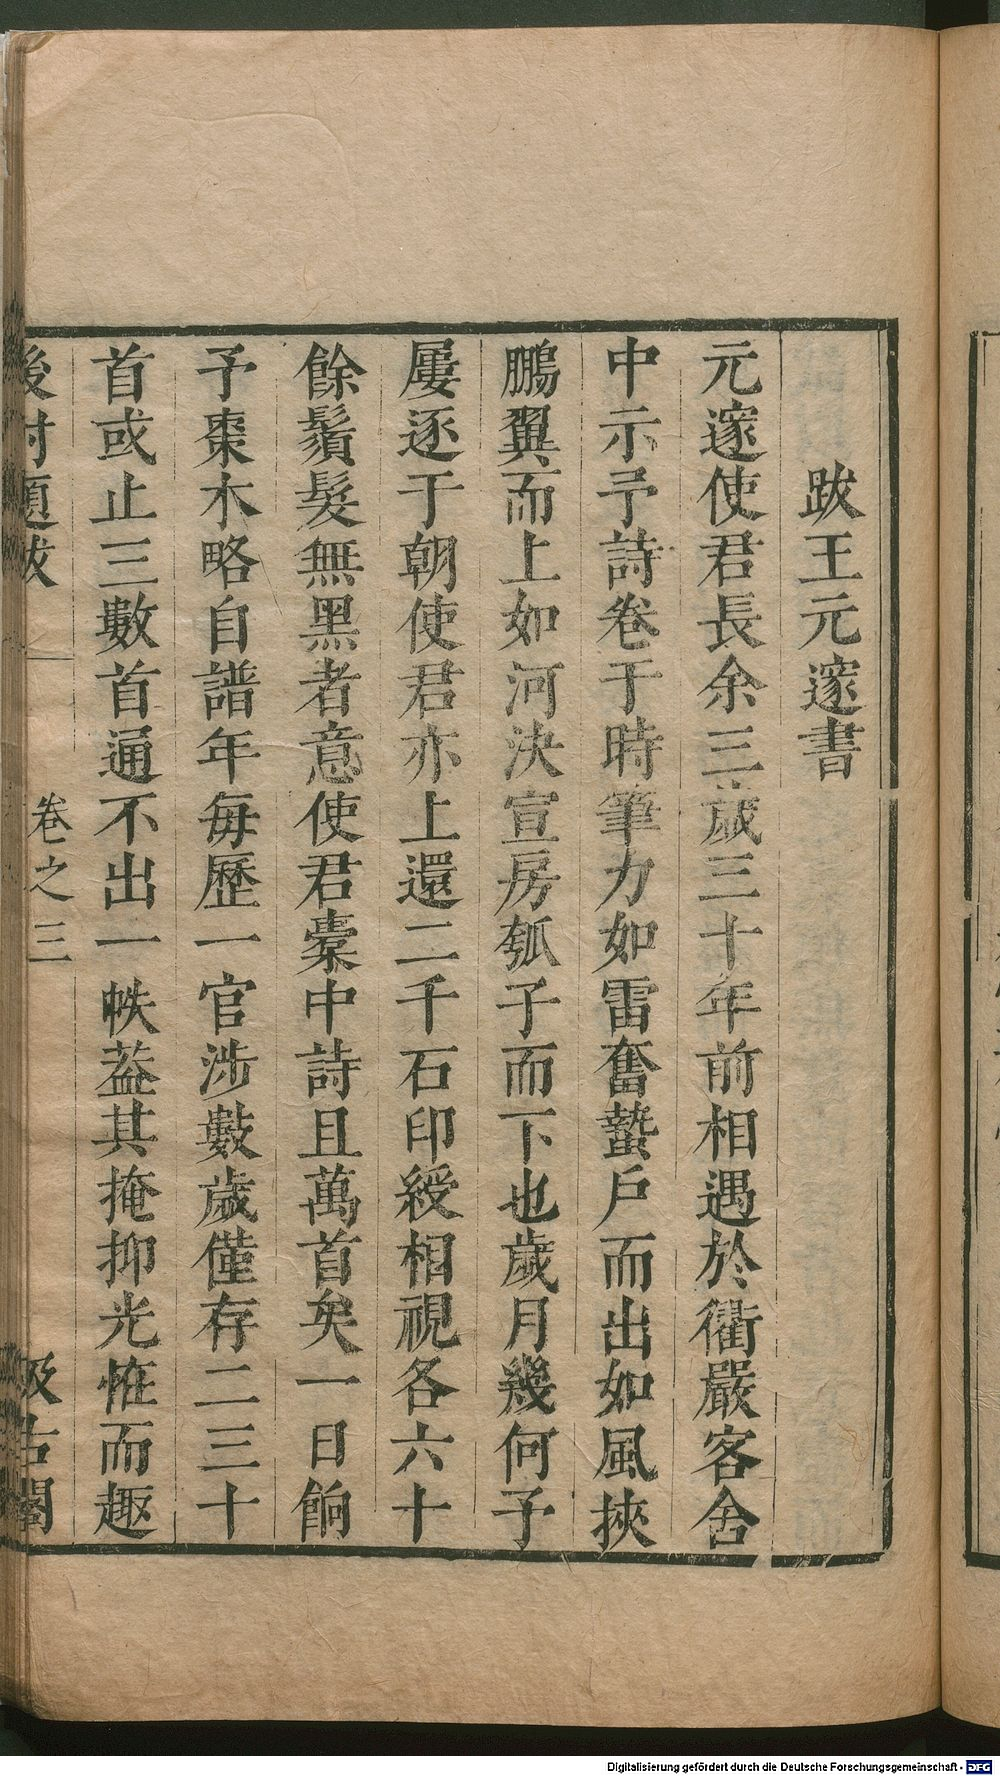 跋王元邃書
元邃使君長余三歲三十年前相遇於衢嚴客舍
中示予詩卷于時筆力如雷奮蟄戶而出如風挾
鵬翼而上如河決宣房瓠子而下也歲月幾何予
屢逐于朝使君亦上還二千石印綬相視各六十
餘鬚髮無黑者意使君槖中詩且萬首矣一日餉
予棗木略自譜年每歷一官涉數歲僅存二三十
首或止三數首通不出一帙葢其掩抑光恠而趣
後村題跋 卷之三 汲古閣
Digitalisierung gefördert durch die Deutsche Forschungsgemeinschaft - DFG